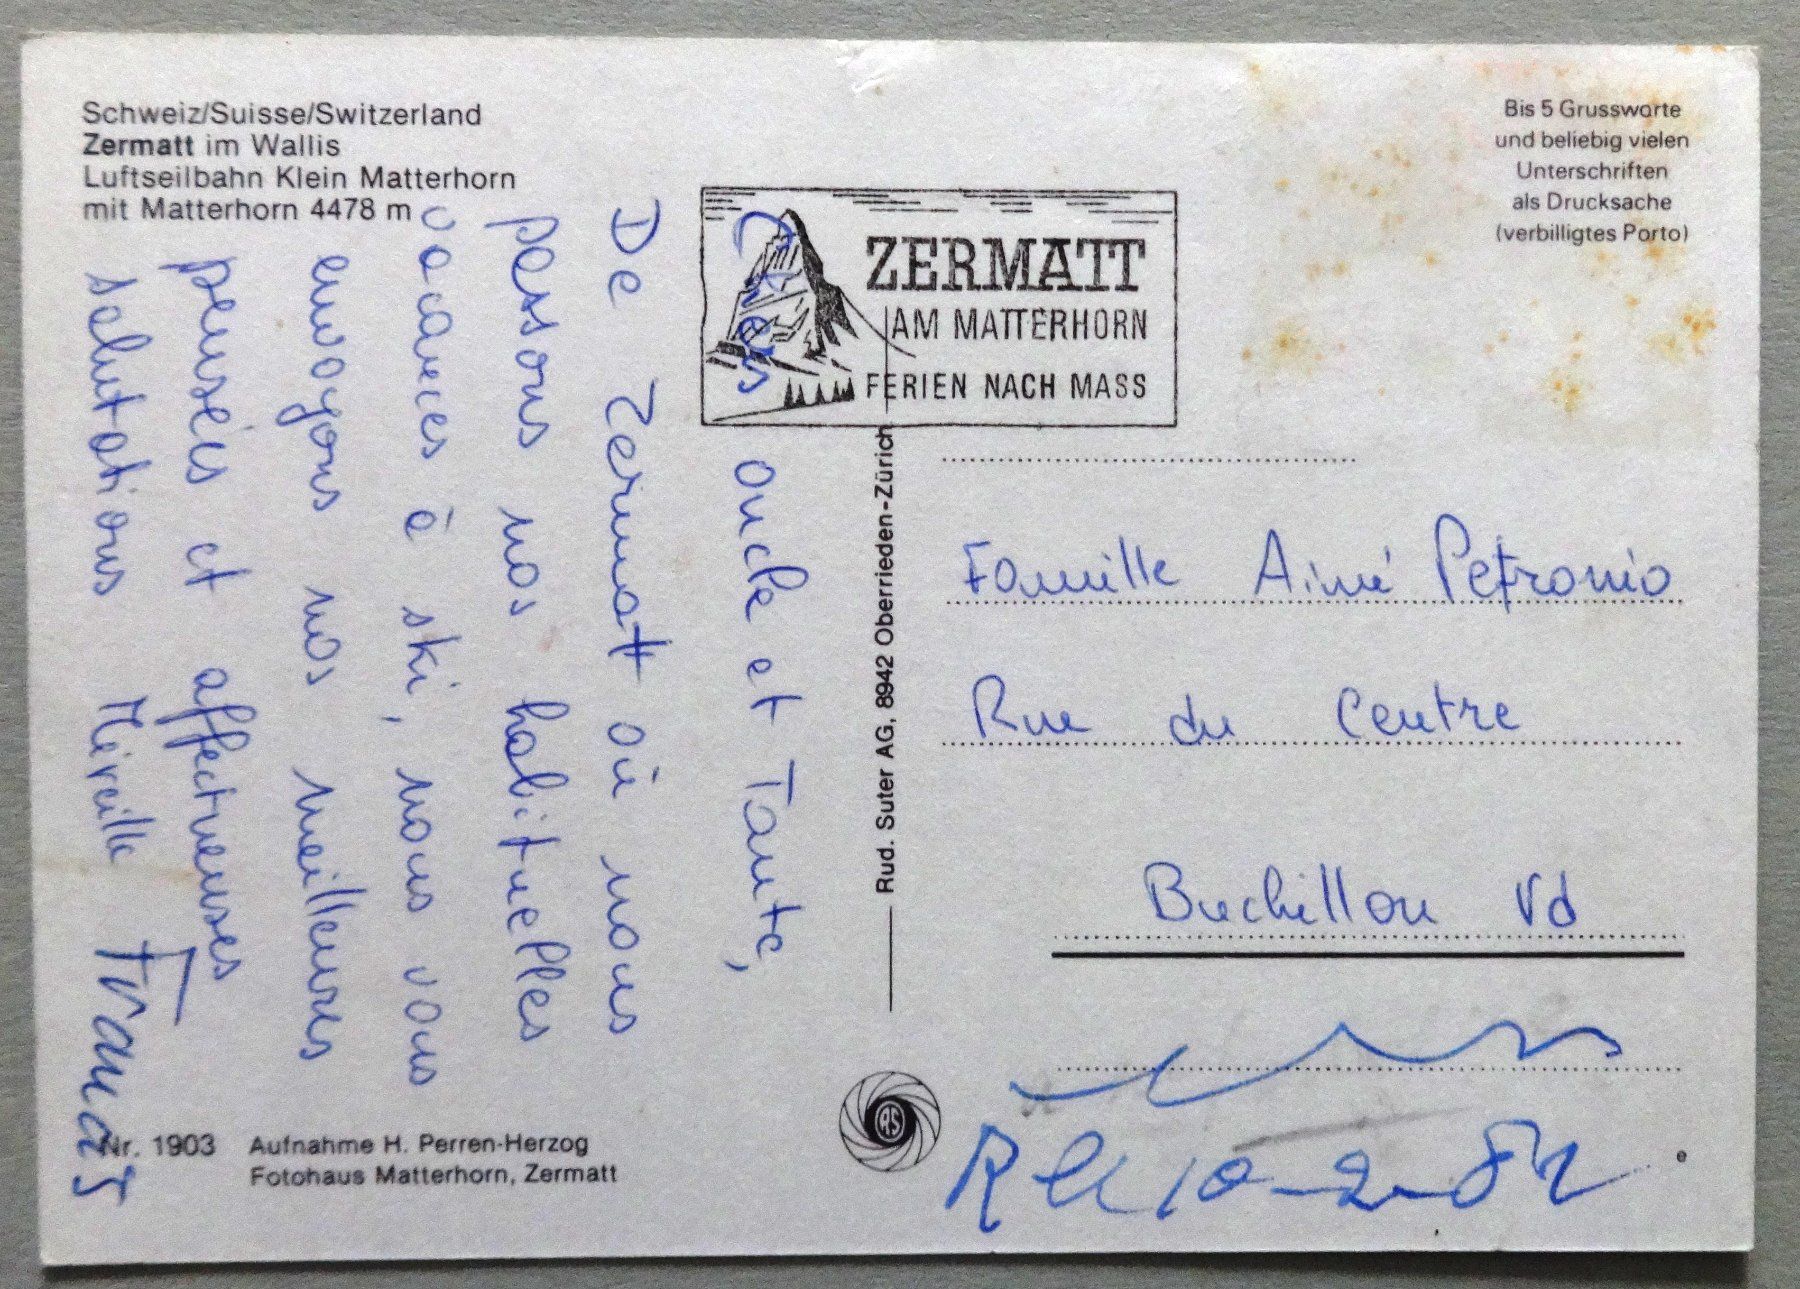 Schweiz/Suisse/Switzerland
Zermatt im Wallis
Luftseilbahn Klein Matterhorn
mit Matterhorn 4478 m
Chers oncle et Tante,
De Zermatt où nous
passons nos habituelles
vacances à ski, nous vous
envoyons nos meilleures
pensées et affectueuses
salutations Mireille Francis
Nr. 1903 Aufnahme H. Perren-Herzog
Fotohaus Matterhorn, Zermatt
Rud. Suter AG, 8942 Oberrieden-Zürich
ZERMATT
AM MATTERHORN
FERIEN NACH MASS
Bis 5 Grussworte
und beliebig vielen
Unterschriften
als Drucksache
(verbilligtes Porto)
Famille Aimé Petronio
Rue du Centre
Buchillon Vd
10-2-82
RS
e